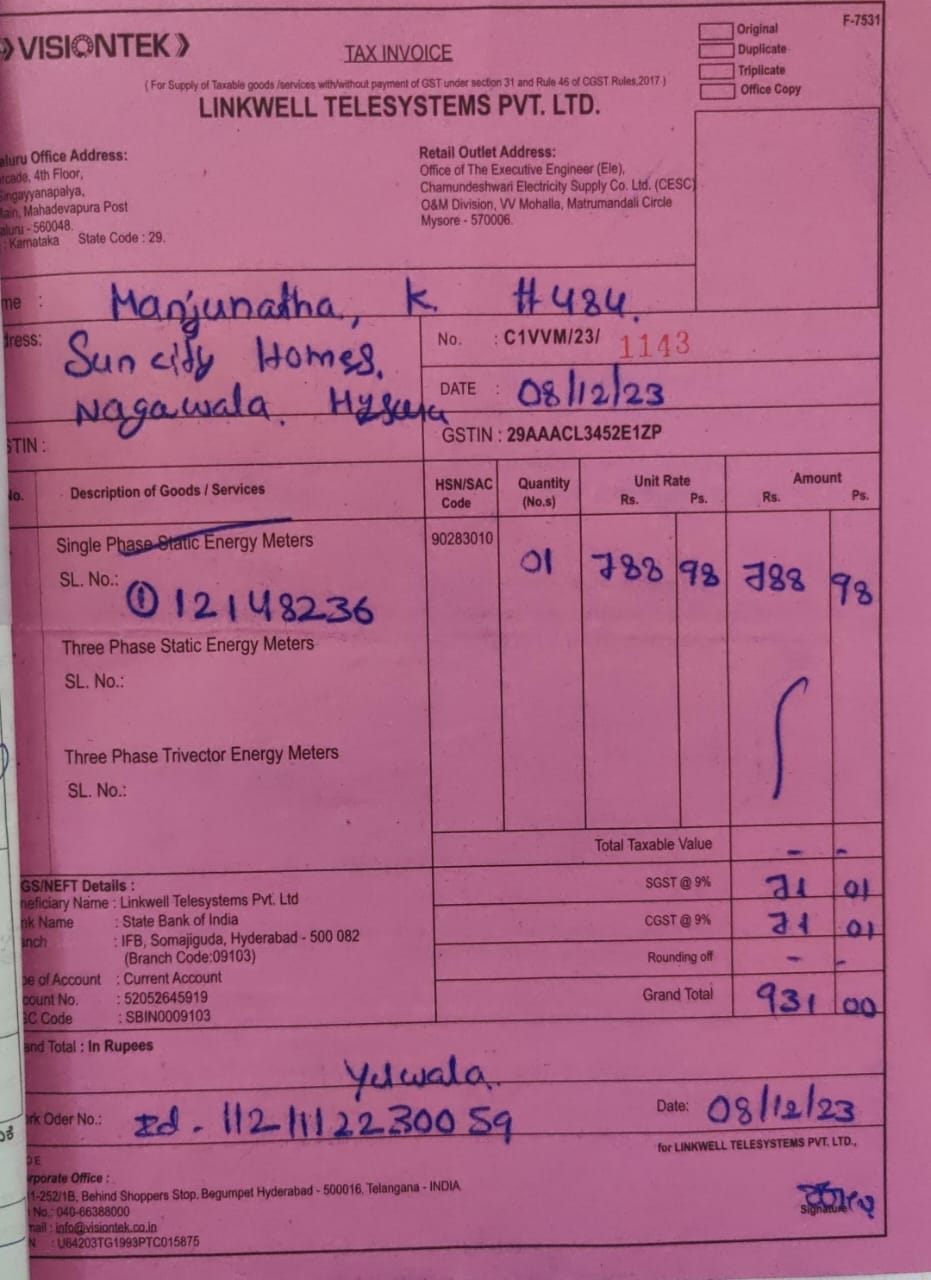 VISIONTEK
TAX INVOICE
Original
Duplicate
Triplicate
Office Copy
F-7531
( For Supply of Taxable goods /services with/without payment of GST under section 31 and Rule 46 of CGST Rules,2017 )
LINKWELL TELESYSTEMS PVT. LTD.
aluru Office Address:
rcade, 4th Floor,
Singayyanapalya,
Main, Mahadevapura Post
aluru - 560048.
: Karnataka State Code : 29.
Retail Outlet Address:
Office of The Executive Engineer (Ele),
Chamundeshwari Electricity Supply Co. Ltd. (CESC)
O&M Division, VV Mohalla, Matrumandali Circle
Mysore - 570006.
me : Manjunatha, K. #484.
dress: Sun city Homes.
Nagawala.
No. : C1VVM/23/ 1143
DATE : 08/12/23
STIN :
GSTIN : 29AAACL3452E1ZP
No. Description of Goods / Services HSN/SAC Code Quantity (No.s) Unit Rate Rs. Ps. Amount Rs. Ps.
Single Phase Static Energy Meters 90283010 01 788 98 788 98
SL. No.:
① 12148236
Three Phase Static Energy Meters
SL. No.:
Three Phase Trivector Energy Meters
SL. No.:
Total Taxable Value - -
SGST @ 9% 71 01
CGST @ 9% 71 01
Rounding off - -
Grand Total 931 00
GS/NEFT Details :
neficiary Name : Linkwell Telesystems Pvt. Ltd
nk Name : State Bank of India
anch : IFB, Somajiguda, Hyderabad - 500 082
(Branch Code:09103)
pe of Account : Current Account
count No. : 52052645919
SC Code : SBIN0009103
and Total : In Rupees
Yelwala.
ork Oder No.: Id - 112111122300 59
Date: 08/12/23
for LINKWELL TELESYSTEMS PVT. LTD.,
DE
rporate Office :
1-252/1B, Behind Shoppers Stop, Begumpet Hyderabad - 500016, Telangana - INDIA
No.: 040-66388000
mail : info@visiontek.co.in
N : U64203TG1993PTC015875
Signature